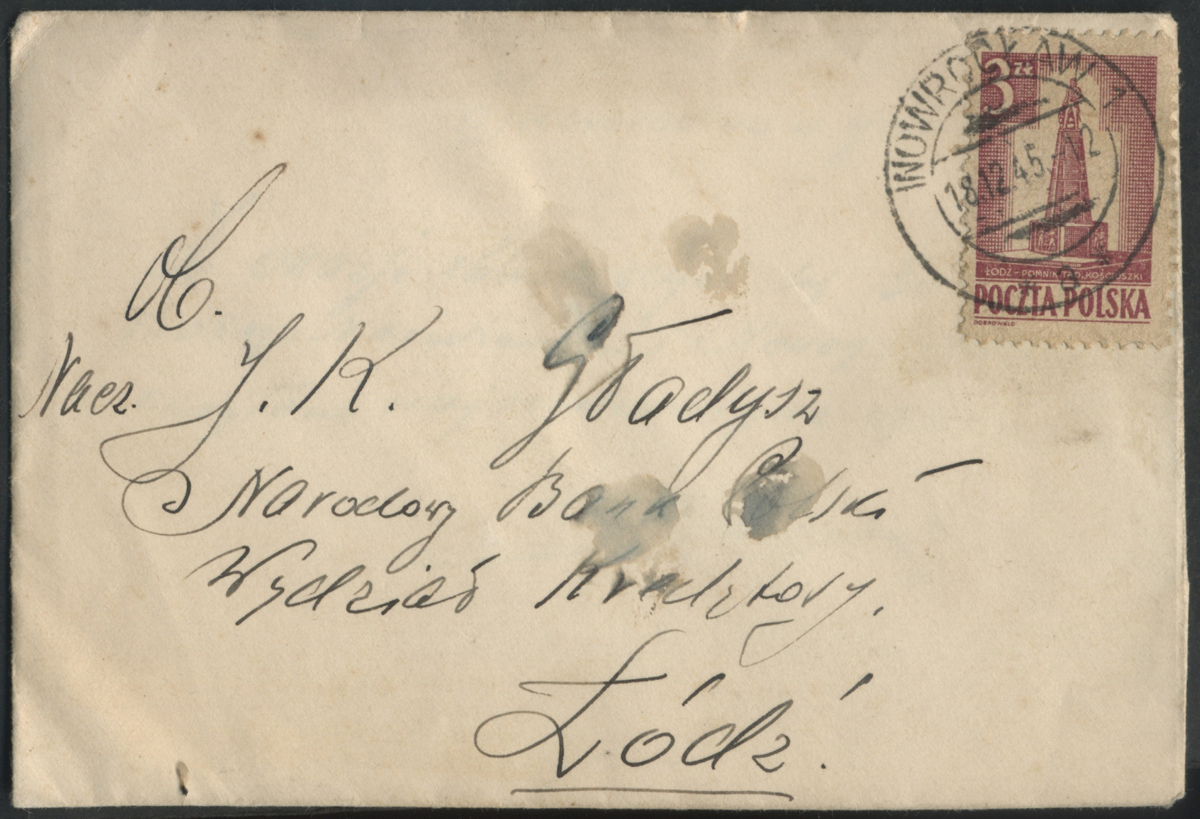 INOWROCŁAW 1
18.12.45.-12
a
3 ZŁ
ŁÓDŹ - POMNIK TAD. KOŚCIUSZKI
POCZTA POLSKA
Ob.
Nacz. J. K. Gładysz
Narodowy Bank Polski
Wydział Kredytowy.
Łódź.